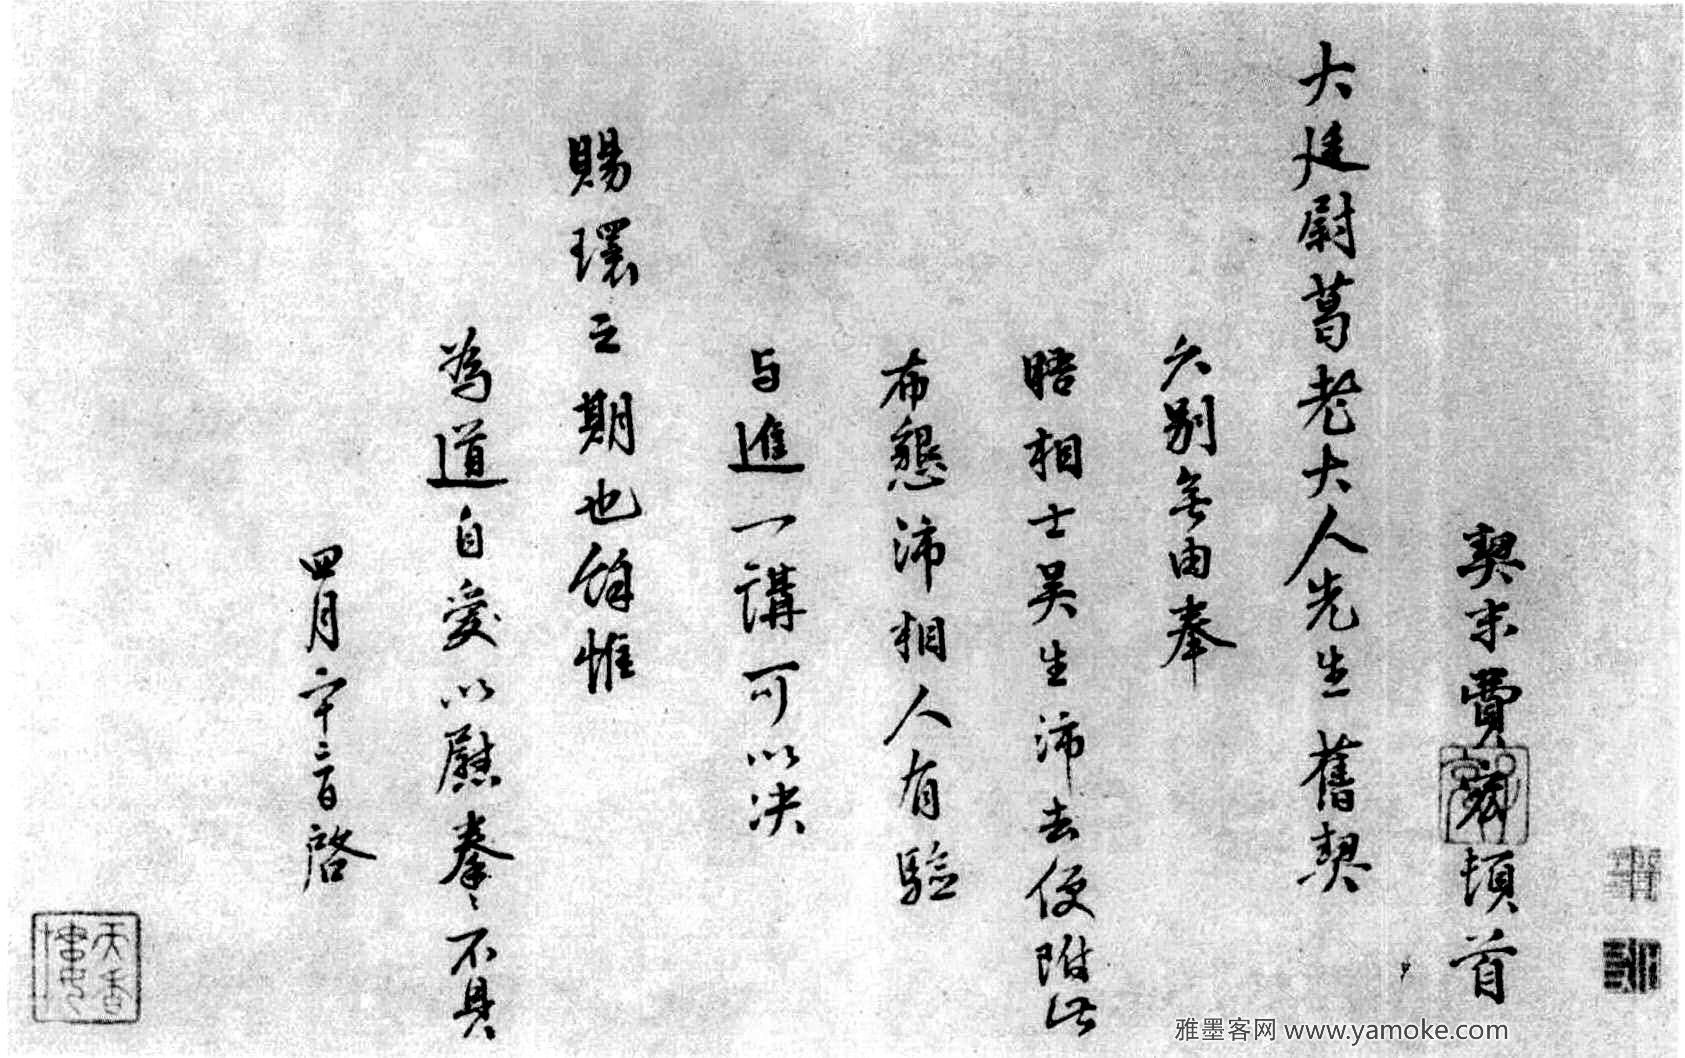 契末費寀頓首
大廷尉葛老大人先生舊契
久別無由奉
晤相士吴生沛去便附此
布懇沛相人有驗
与進一講可以决
賜環之期也餘惟
為道自愛以慰拳〻不具
四月二十二日啓
天香書屋
雅墨客网 www.yamoke.com